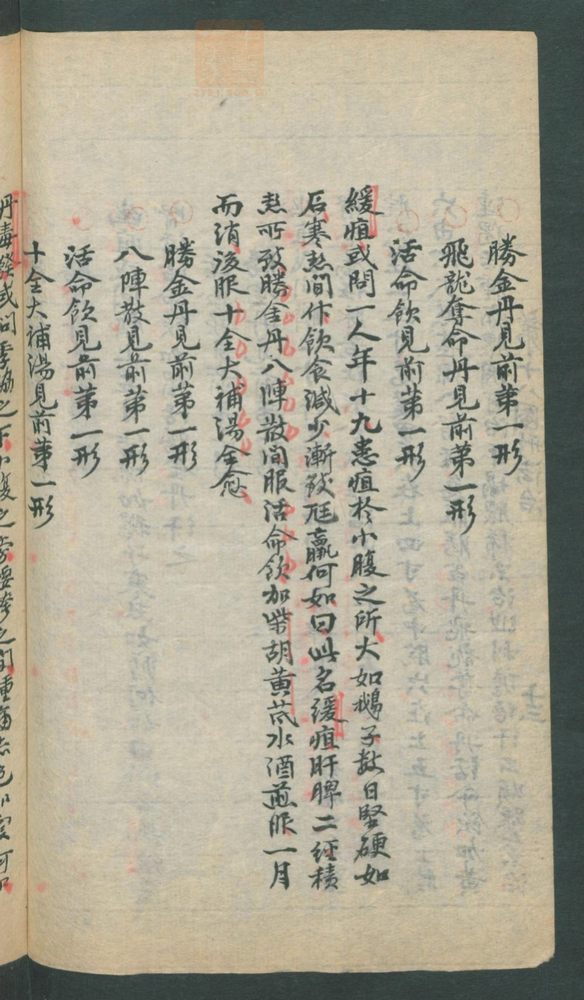 勝金丹見前第一形
飛龍奪命丹見前第一形
活命飲見前第一形
緩疽或問一人年十九患疽於小腹之所大如鵝子数日堅硬如
石寒热間作飲食減少漸致尪羸何如曰此名緩疽肝脾二經積
热所致勝金丹八陣散間服活命飲加柴胡黃芪水酒煎服一月
而消後服十全大補湯全愈
勝金丹見前第一形
八陣散見前第一形
活命飲見前第一形
十全大補湯見前第一形
丹毒發或問